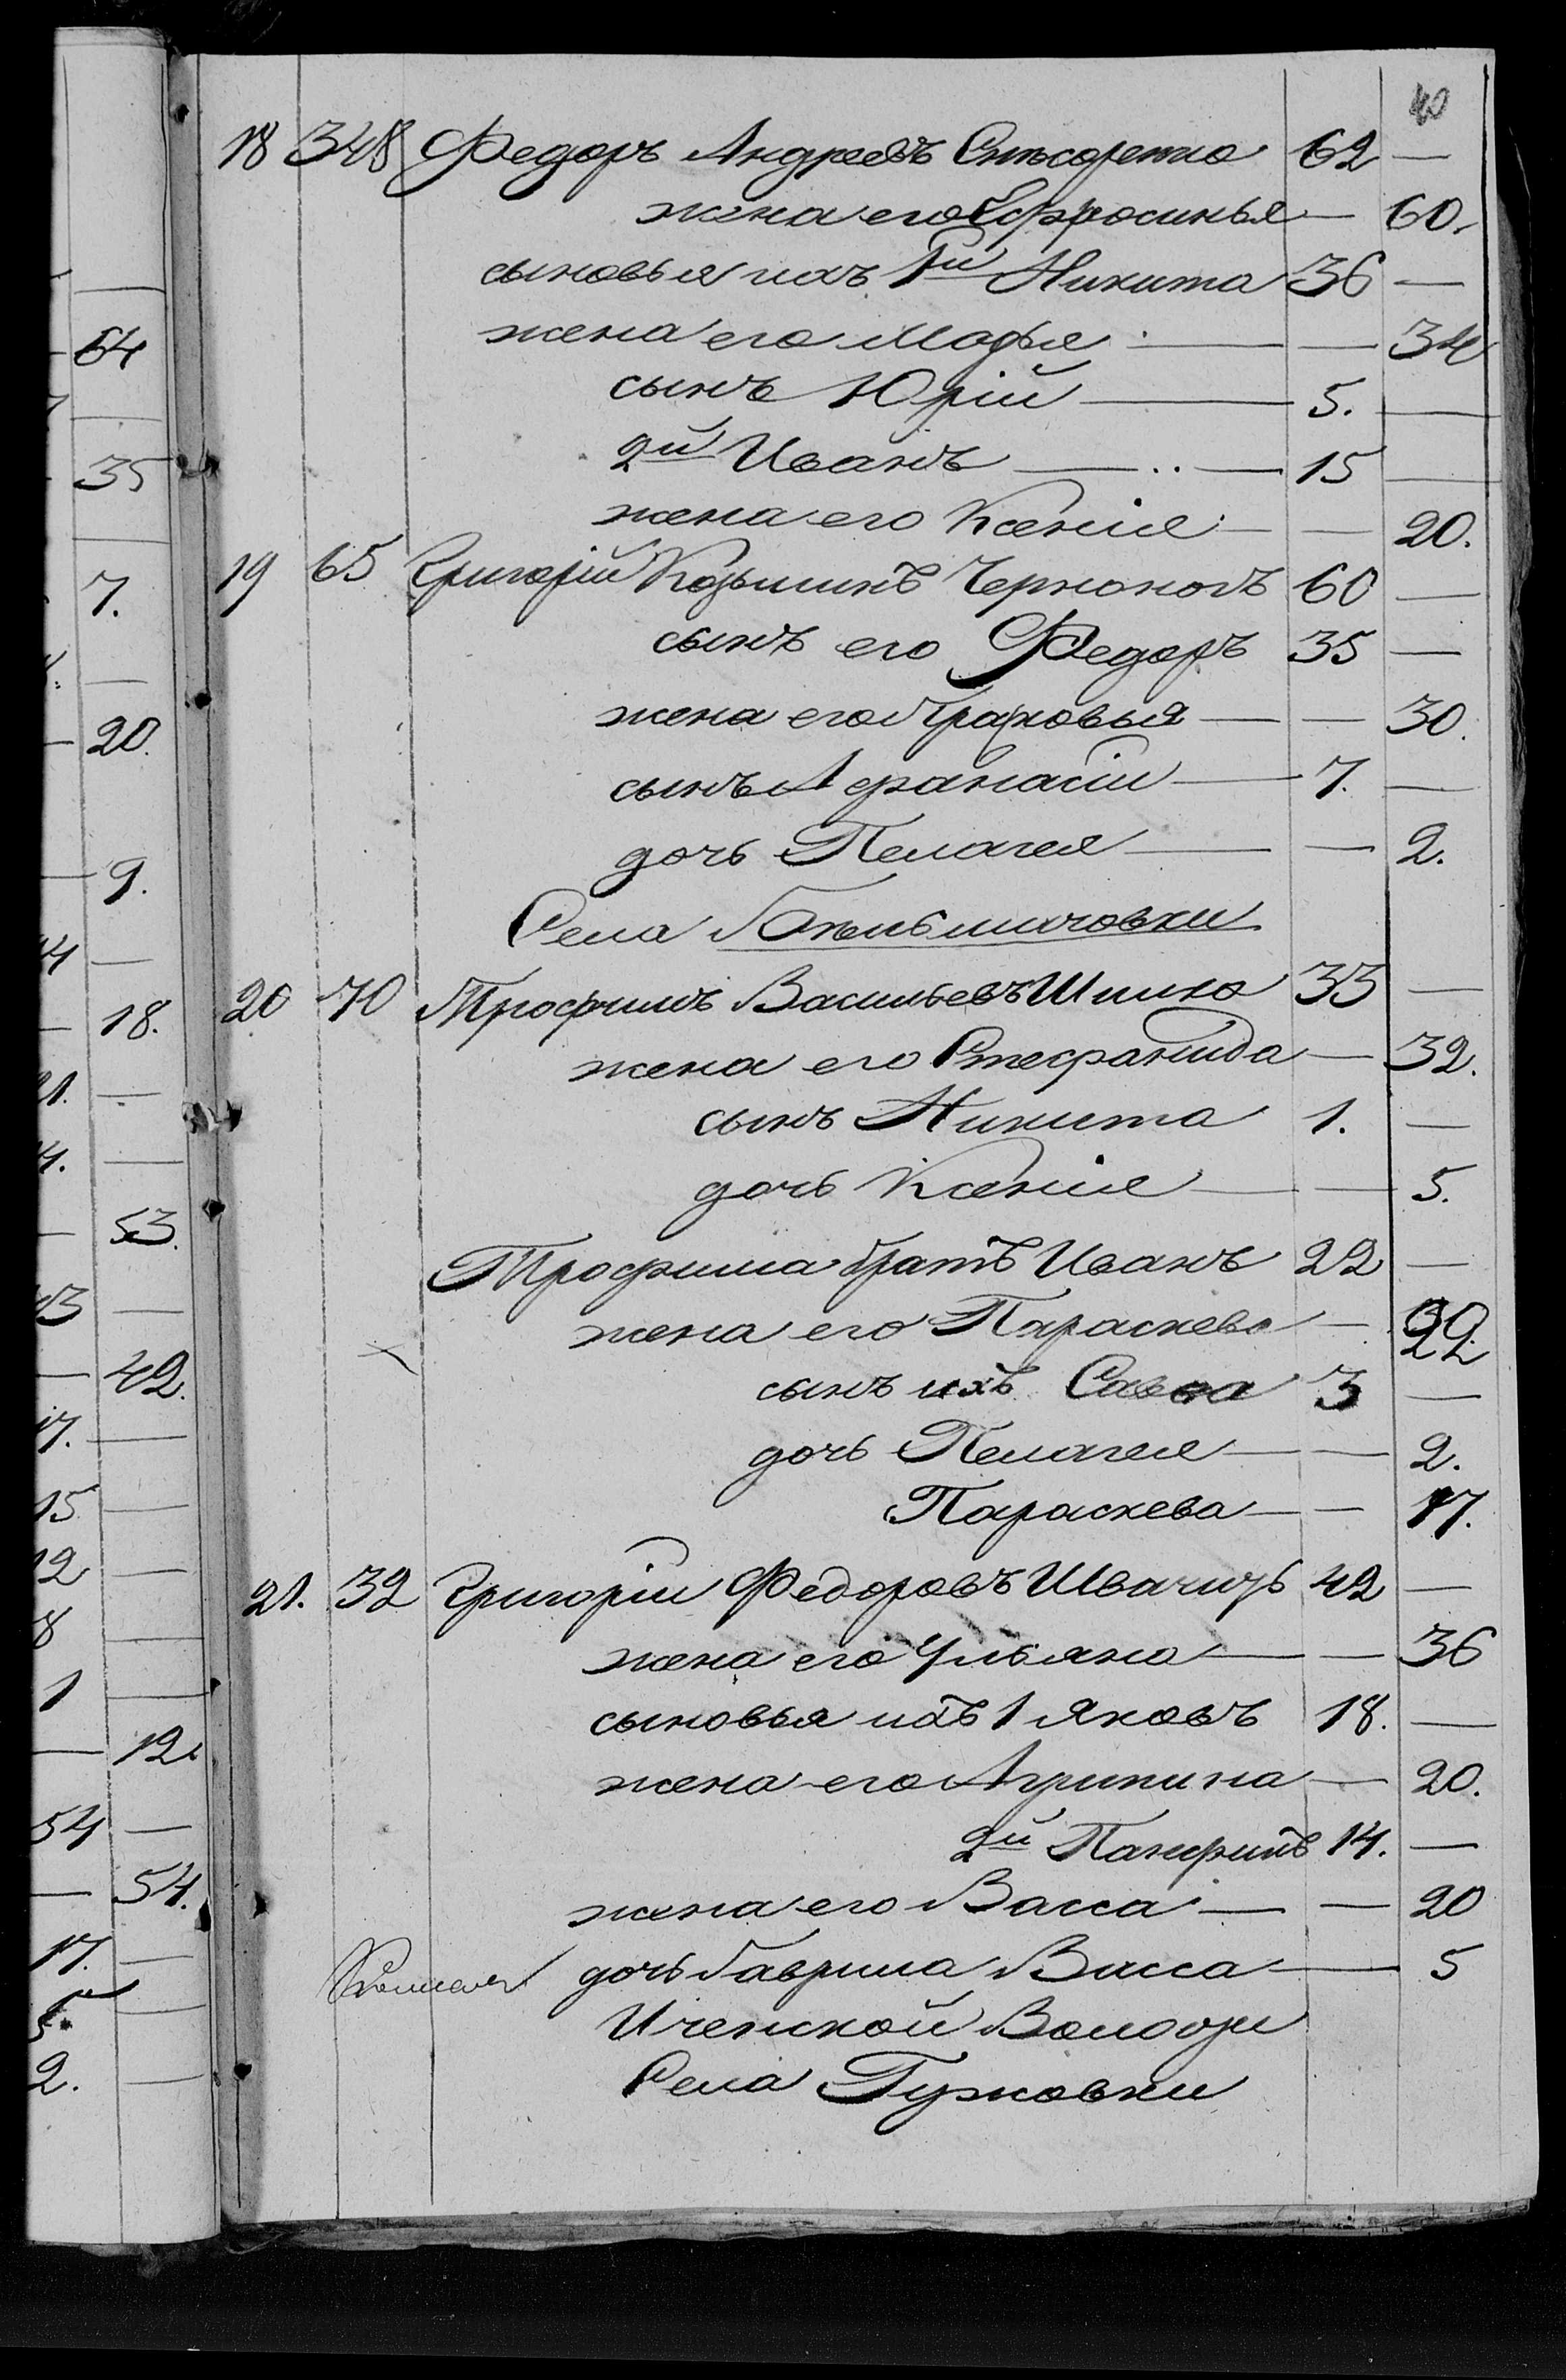 40
18 348 Федоръ Андреевъ 62 —
жена его Ефросинья — 60.
сыновья ихъ 1й Никита 36 —
жена его Марья — — 34
сынъ Юрій — 5. —
2й Иванъ — 15 —
жена его Ксенія — — 20.
19 65 Григорій Козьминъ Черноногъ 60 —
сынъ его Федоръ 35 —
жена его Прасковья — — 30.
сынъ Афанасій — 7. —
дочь Пелагея — — 2.
Села
20 70 Трофимъ Васильевъ Шило 33 —
жена его Стефанида — 32.
сынъ Никита 1. —
дочь Ксенія — — 5.
Трофима братъ Иванъ 22 —
жена его Параскева — 22
сынъ ихъ Савва 3 —
дочь Пелагея — — 2.
Параскева — — 17.
21. 32 Григорій Федоровъ Швачичъ 42 —
жена его Ульяна — — 36
сыновья ихъ 1 Яковъ 18. —
жена его Агрипина — 20.
2й Панфилъ 14. —
жена его Васса — — 20
дочь Гаврила Васса — 5
Иченской Волости
Села Гужовки
64
35
7.
20.
9.
14 —
— 18.
21. —
4. —
— 53.
43 —
— 42.
17. —
15 —
12 —
8 —
1 —
— 12.
54 —
— 54.
17. —
5. —
2. —